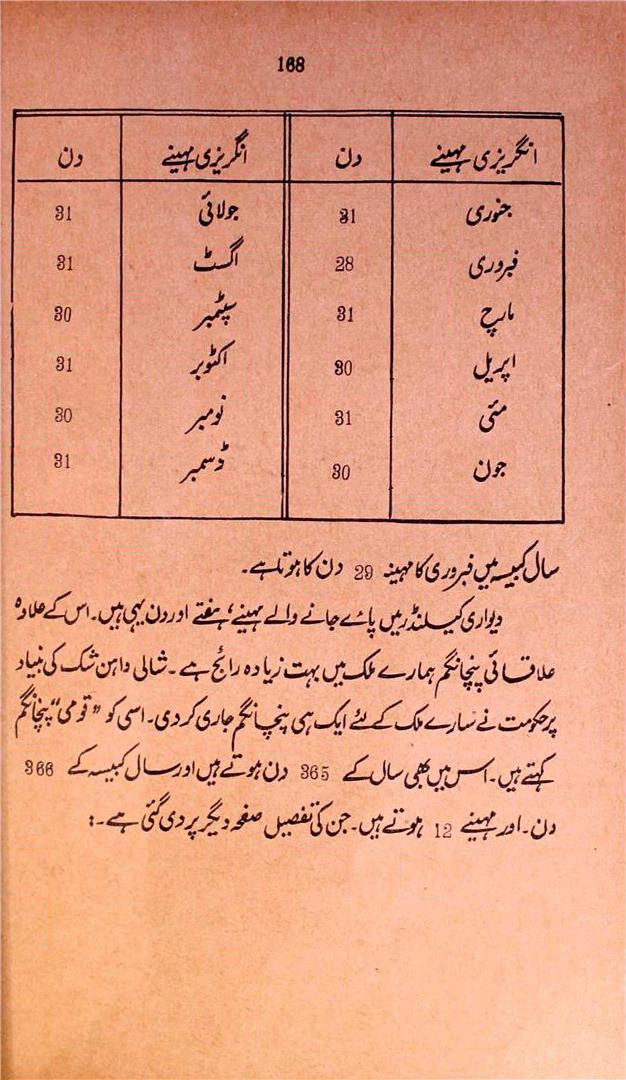 168
انگریزی مہینے دن انگریزی مہینے دن
جنوری 31 جولائی 31
فبروری 28 اگسٹ 31
مارچ 31 سپٹمبر 30
اپریل 30 اکٹوبر 31
مئی 31 نومبر 30
جون 30 ڈسمبر 31
سال کبیسہ میں فبروری کا مہینہ 29 دن کا ہوتا ہے۔
دیواری کیلنڈر میں پائے جانے والے مہینے، ہفتے اور دن یہی ہیں۔ اس کے علاوہ
علاقائی پنچانگم ہمارے ملک میں بہت زیادہ رائج ہے۔ شالی واہن شک کی بنیاد
پر حکومت نے سارے ملک کے لئے ایک ہی پنچانگم جاری کر دی۔ اسی کو "قومی" پنچانگم
کہتے ہیں۔ اس میں بھی سال کے 365 دن ہوتے ہیں اور سال کبیسہ کے 366
دن۔ اور مہینے 12 ہوتے ہیں۔ جن کی تفصیل صفحہ دیگر پر دی گئی ہے۔: